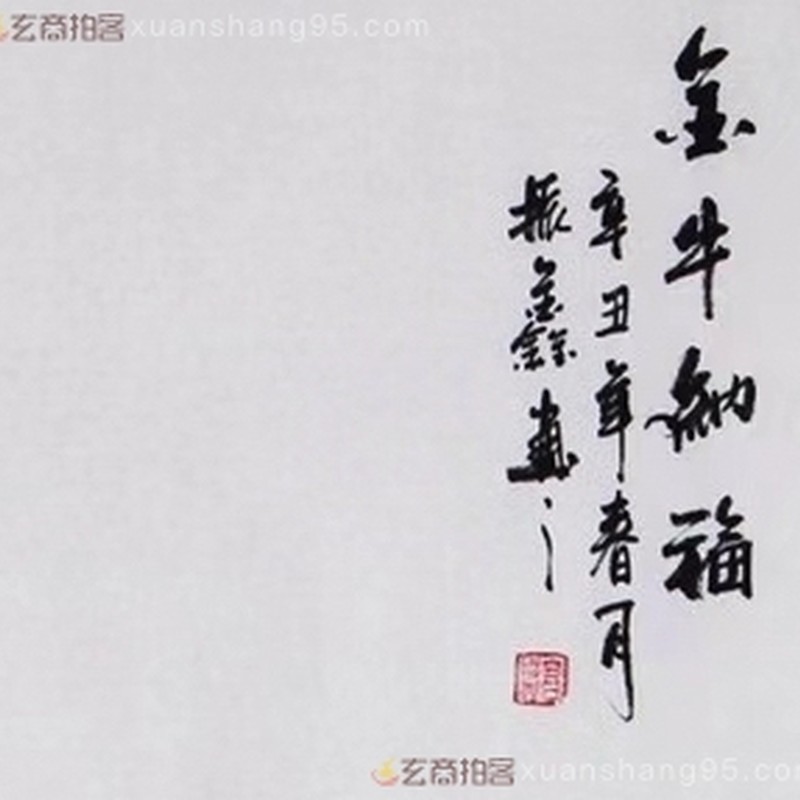 玄商拍客 xuanshang95.com
金牛納福
辛丑年春月
振鑫畫之
玄商拍客 xuanshang95.co